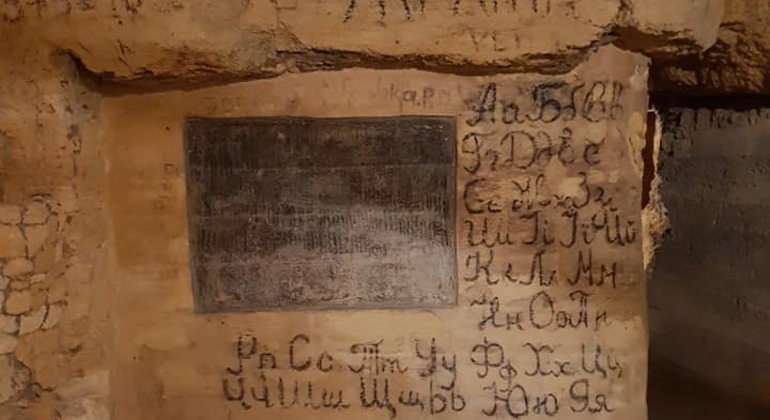 Аа Бб Вв
Гг Дд Ее
Єє Жж Зз
Ии Іі Її Йй
Кк Лл Мм
Нн Оо Пп
Рр Сс Тт Уу Фф Хх Цц
Чч Шш Щщ Ьь Юю Яя